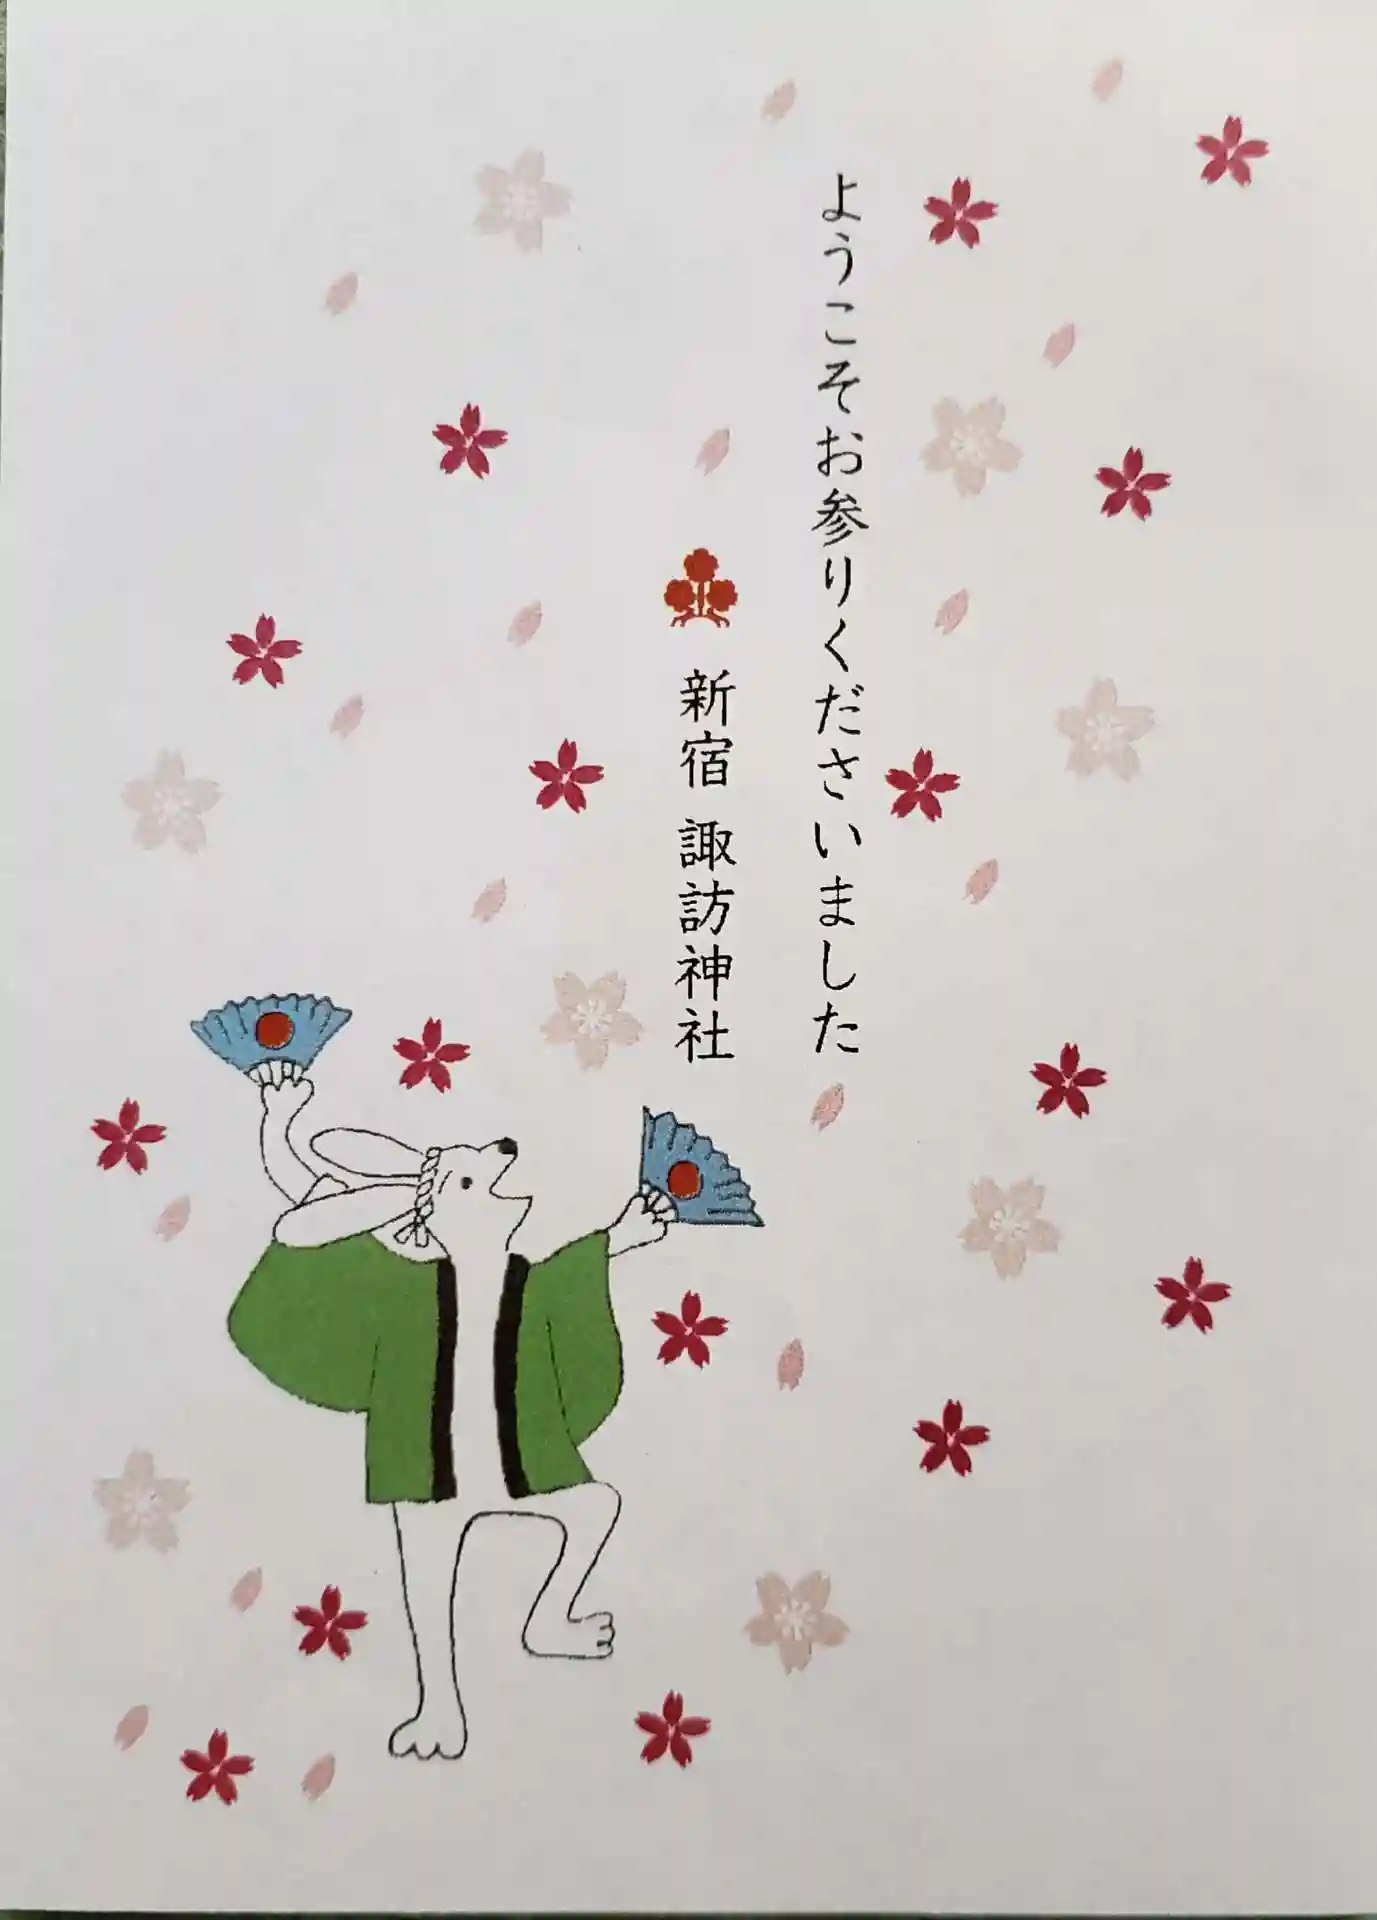 ようこそお参りくださいました
新宿 諏訪神社